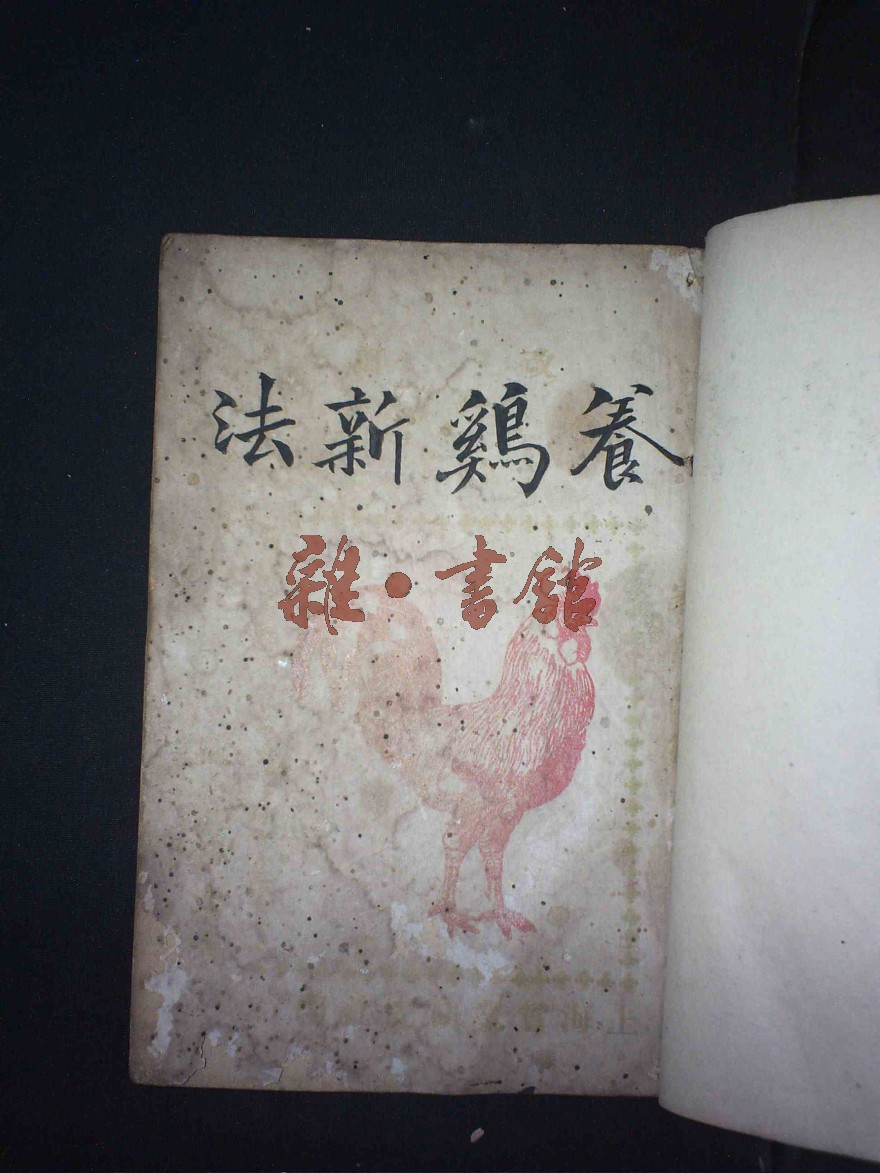 養鷄新法
雜•書舘
上海